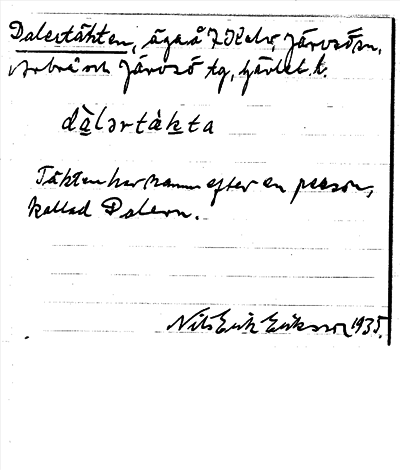 Dalertäkten, äga å 7 Kalv, Järvsö sn,
Arbrå och Järvsö tg, Gävleb. l.
dàlərtàkta
Täkten har namn efter en person,
kallad Dalern.
Nils Erik Eriksson 1935.